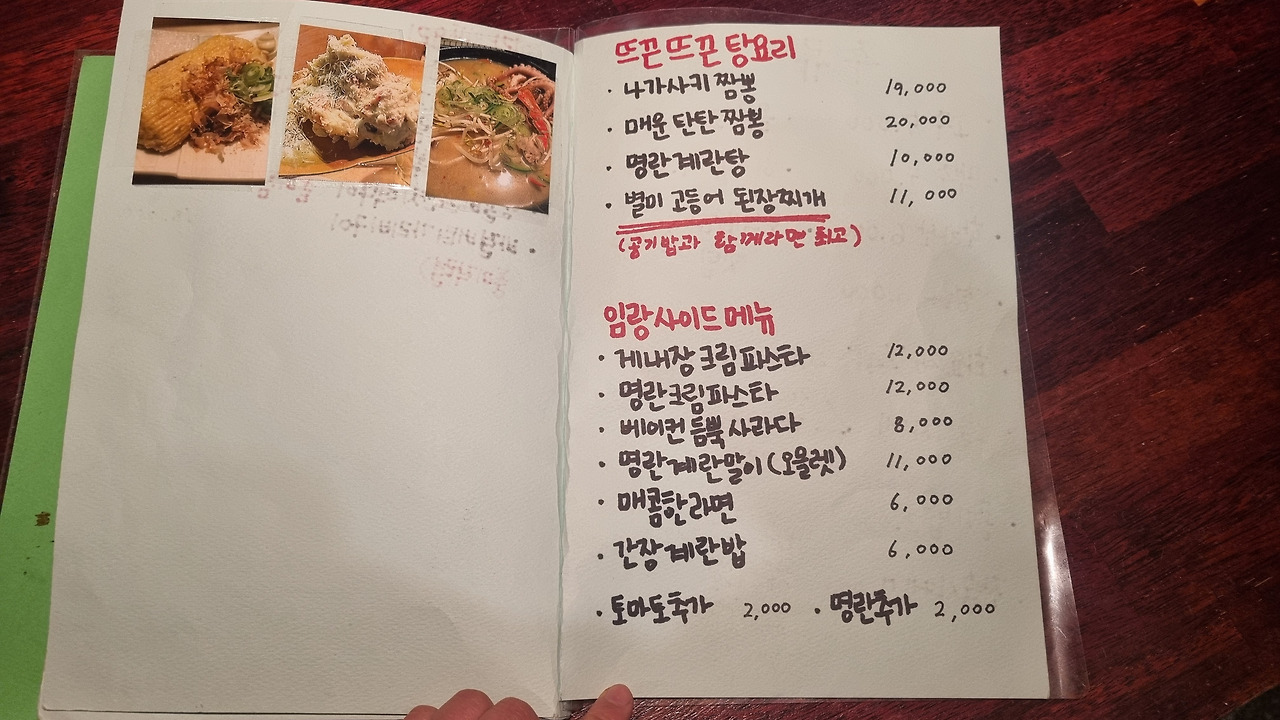 뜨끈뜨끈 탕요리
· 나가사키 짬뽕 19,000
· 매운 탄탄 짬뽕 20,000
· 명란 계란탕 10,000
· 별미 고등어 된장찌개 11,000
(공기밥과 함께라면 최고)
임랑 사이드 메뉴
· 게내장 크림 파스타 12,000
· 명란크림파스타 12,000
· 베이컨 듬뿍 사라다 8,000
· 명란계란말이 (오믈렛) 11,000
· 매콤한 라면 6,000
· 간장계란밥 6,000
· 토마토추가 2,000 · 명란추가 2,000